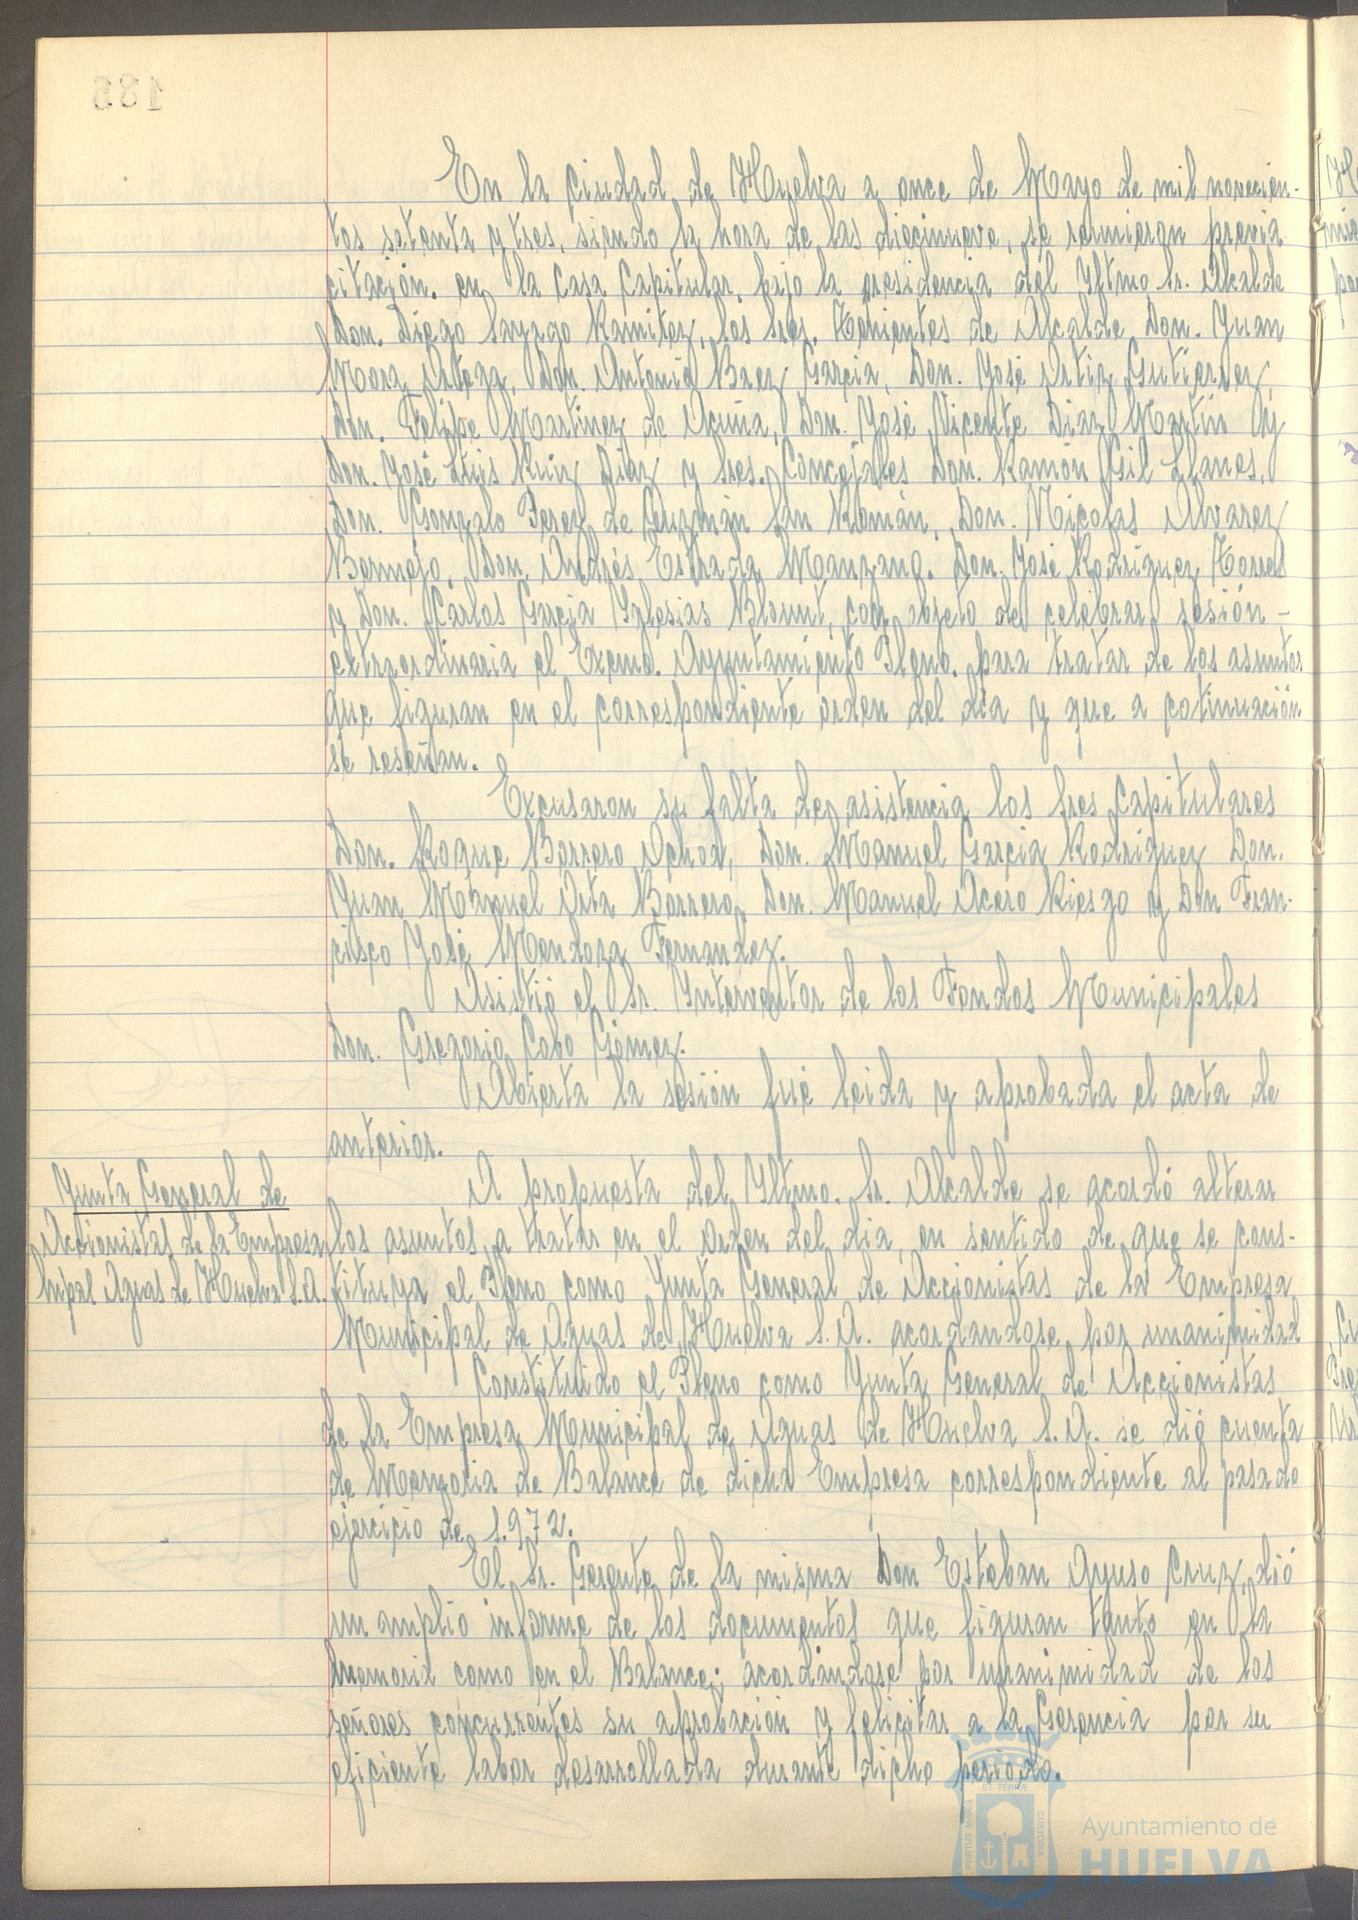 185
En la Ciudad de Huelva a once de Mayo de mil novecien-
tos setenta y tres, siendo la hora de las diecinueve, se reunieron previa
citación. en la Casa Capitular, bajo la presidencia del Yltmo Sr. Alcalde
Don. Diego Sayago Ramirez, los Sres. Tenientes de Alcalde Don. Yuan
Mora Ortega, Don. Antonio Baez Garcia, Don. José Ortiz Gutierrez,
Don. Felipe Martinez de Acuña, Don. José Vicente Diaz Martín y
Don. José Luis Ruiz Diaz y Sres. Concejales Don. Ramón Gil Llanes,
Don. Gonzalo Perez de Guzmán San Román, Don. Nicolas Alvarez
Bermejo, Don. Andrés Estrada Manzano. Don. José Rodriguez Torres
y Don. Carlos Garcia Yglesias Blount, con objeto de celebrar sesión -
extraordinaria el Excmo. Ayuntamiento Pleno. para tratar de los asuntos
que figuran en el correspondiente orden del dia y que a cotinuación
se reseñan.
Excusaron su falta de asistencia los Sres Capitulares
Don. Roque Barrero Ochoa, Don. Manuel Garcia Rodriguez Don.
Yuan Manuel Orta Barrero, Don. Manuel Acero Riesgo y Don Fran-
cisco José Mendoza Fernandez.
Asistió el Sr. Ynterventor de los Fondos Municipales
Don. Gregorio Cabo Gómez.
Abierta la sesión fué leida y aprobada el acta de
anterior.
Yunta General de
Accionistas de la Empresa
Mpal Aguas de Huelva S.A.
A propuesta del Yltmo. Sr. Alcalde se acordó alterar
los asuntos a tratar en el orden del dia, en sentido de que se cons-
tituya el Pleno como Yunta General de Accionistas de la Empresa
Municipal de Aguas de Huelva S.A. acordandose por unanimidad
Constituido el Pleno como Yunta General de Accionistas
de la Empresa Municipal de Aguas de Huelva S.A. se dió cuenta
de Memoria de Balance de dicha Empresa correspondiente al pasado
ejercicio de 1.972.
El Sr. Gerente de la misma Don Esteban Ayuso Cruz, dió
un amplio informe de los documentos que figuran tanto en la
Memoria como en el Balance; acordandose por unanimidad de los
señores concurrentes su aprobación y felicitar a la Gerencia por su
eficiente labor desarrollada durante dicho periodo.
PORTUS MARIS ET TERRÆ CUSTODIA
Ayuntamiento de
HUELVA